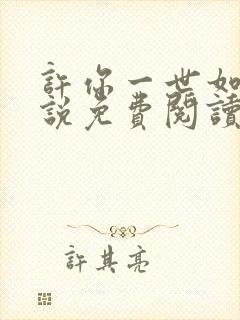 許你一世如
說免費閱讀
許其亮